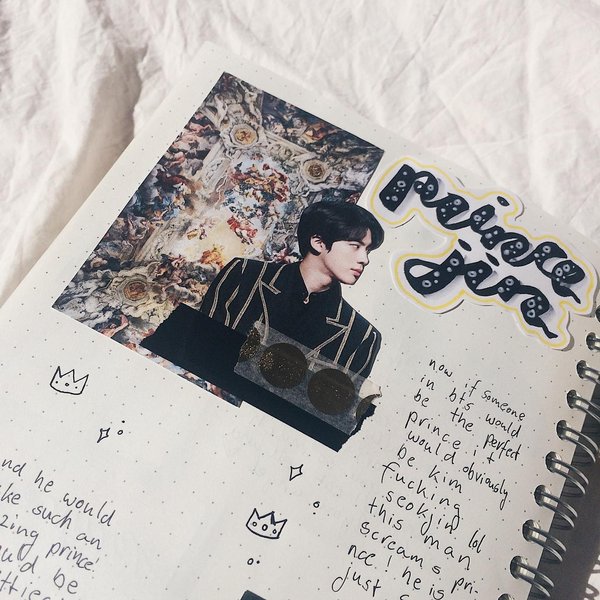 prince
jin
now if someone
in bts would
be the perfect
prince it
would obviously
be kim
fucking
seokjin lol
this man
screams pri-
nce! he is
just
and he would
such an
prince
be